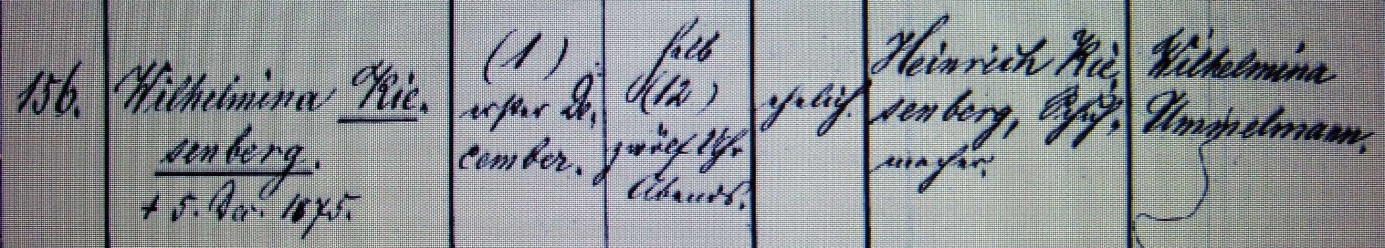 156.
Wilhelmina Rie.
senberg.
+ 5. Dec. 1875.
(1)
erster De,
cember.
halb
(12)
zwölf Uhr
Abends.
ehelich.
Heinrich Rie,
senberg, Schuh,
macher.
Wilhelmina
Ummelmann.